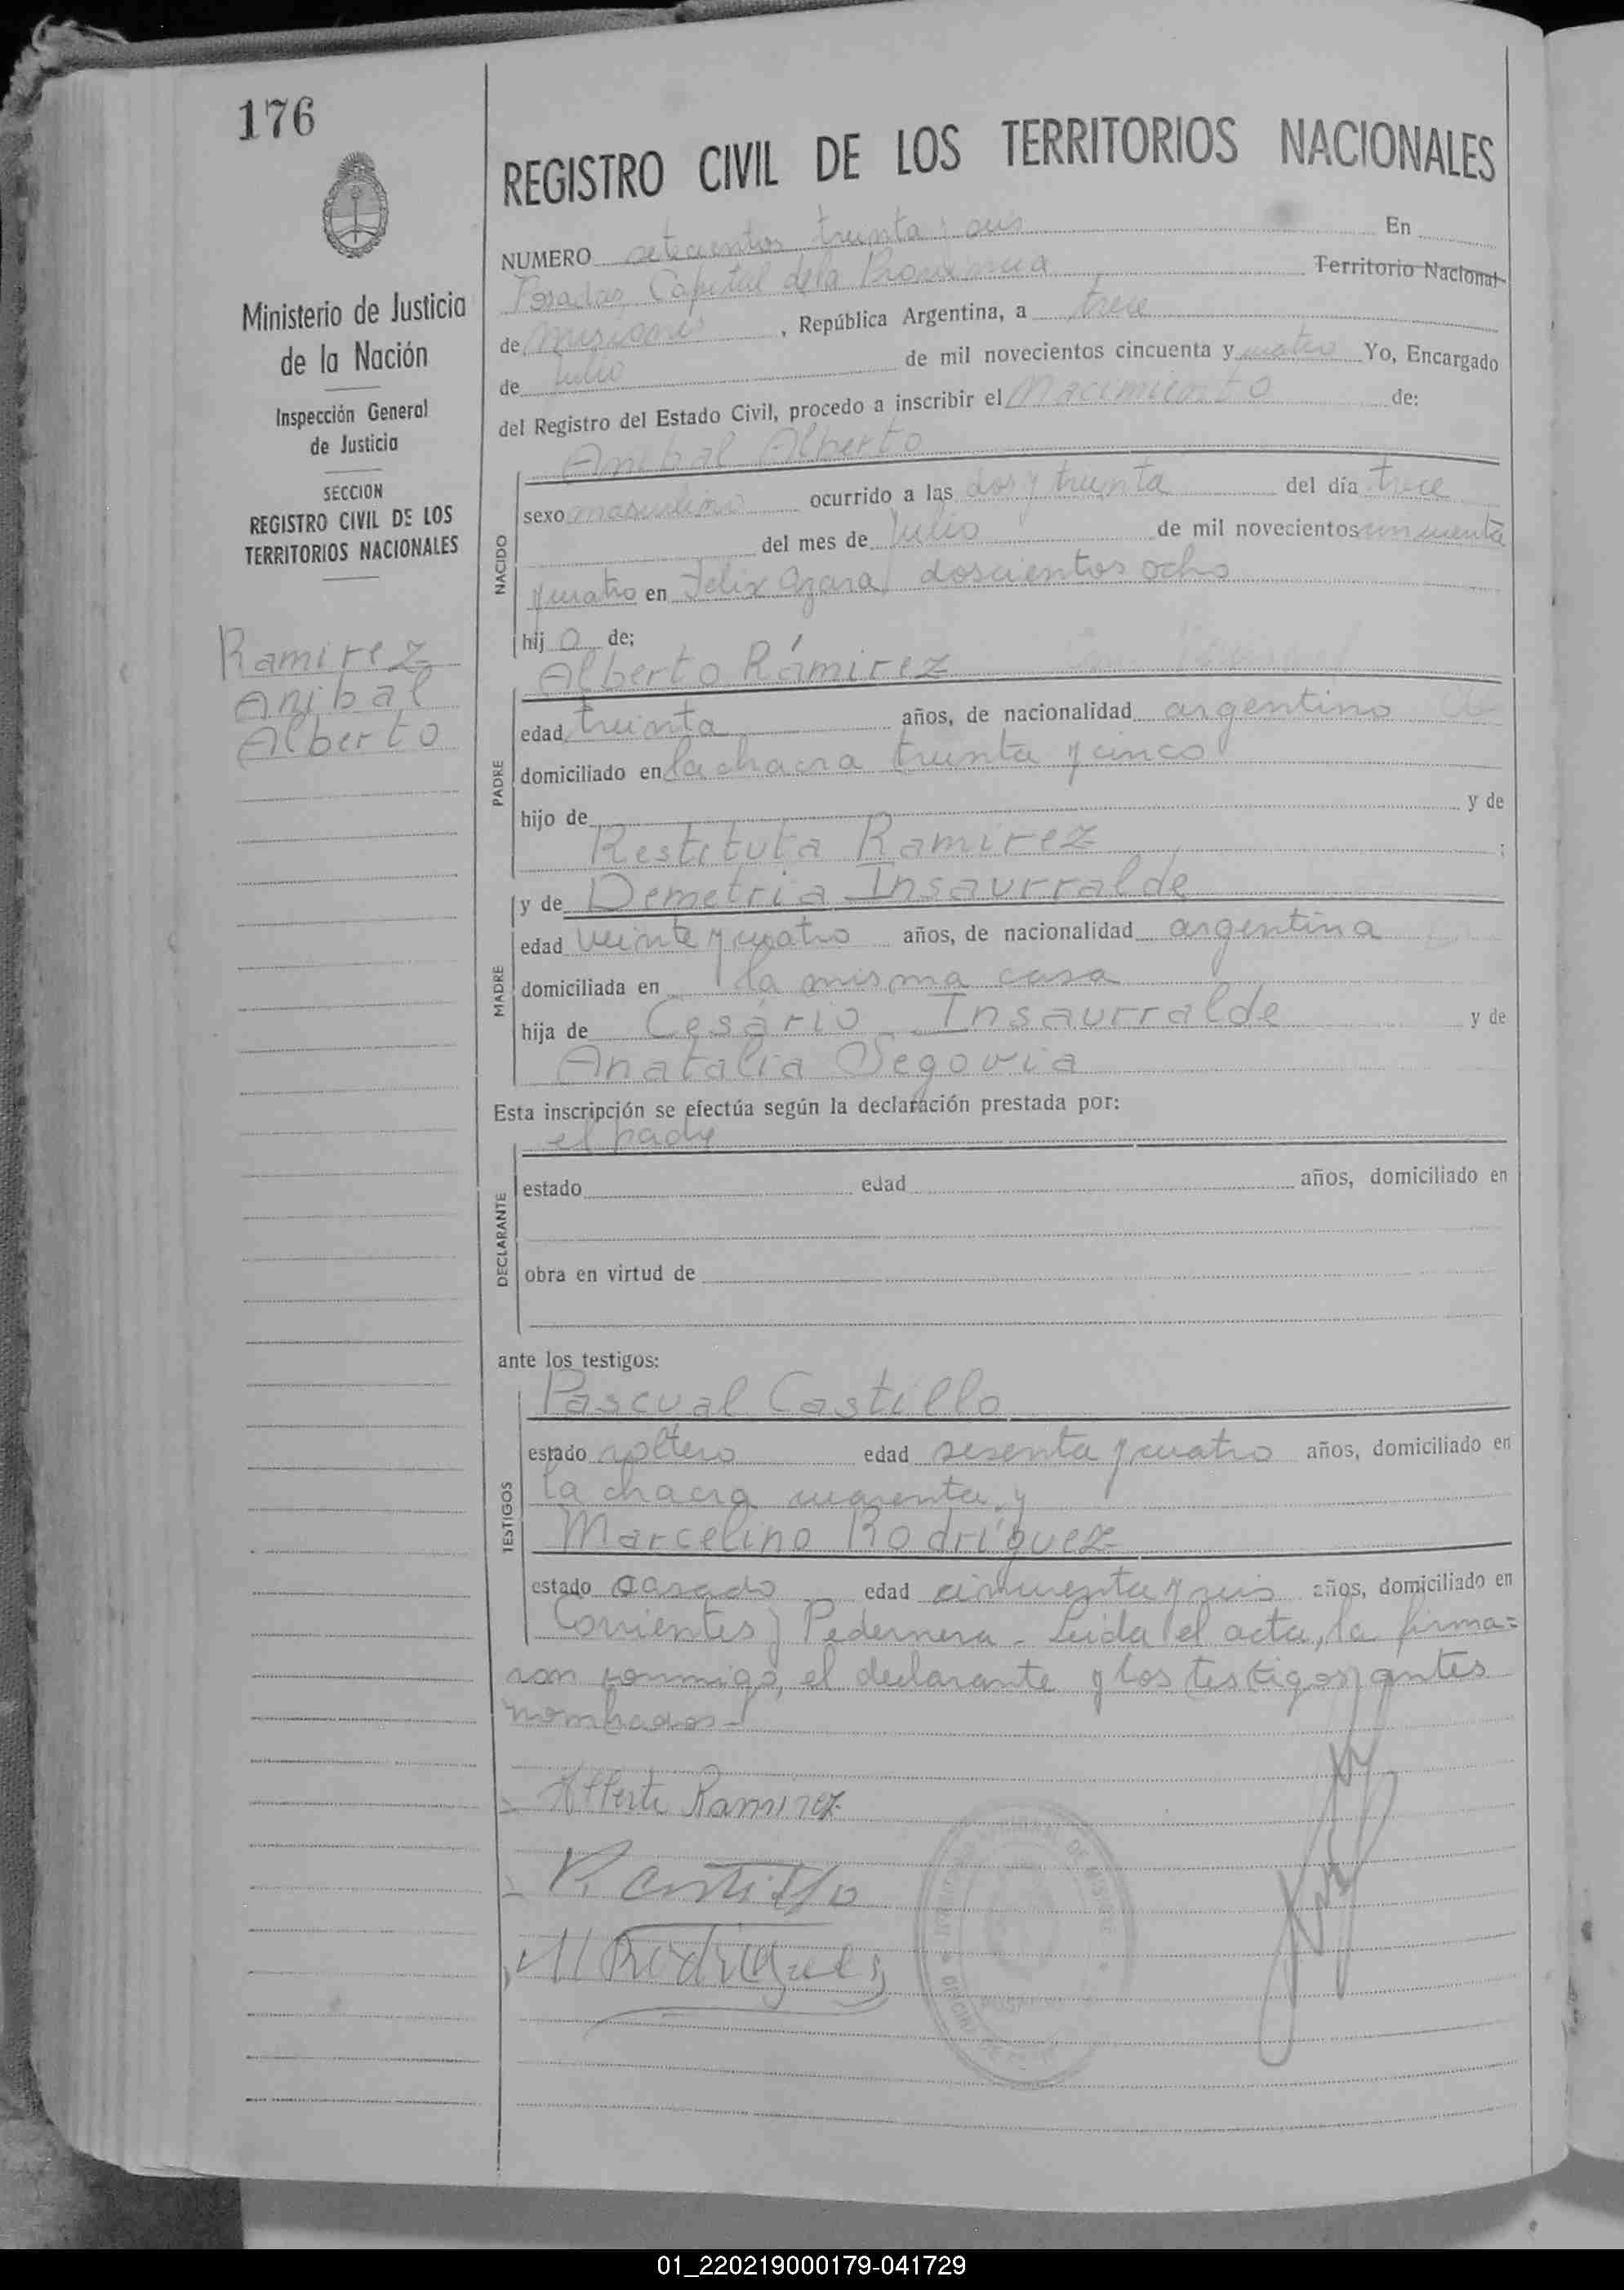 176
REGISTRO CIVIL DE LOS TERRITORIOS NACIONALES
NUMERO setecientos treinta i seis En
Posadas Capital de la Provincia Territorio Nacional
de Misiones, República Argentina, a trece
de Julio de mil novecientos cincuenta y cuatro Yo, Encargado
del Registro del Estado Civil, procedo a inscribir el Nacimiento de:
Anibal Alberto
Ministerio de Justicia
de la Nación
Inspección General
de Justicia
SECCION
REGISTRO CIVIL DE LOS
TERRITORIOS NACIONALES
Ramirez
Anibal
Alberto
NACIDO
sexo masculino ocurrido a las dos y treinta del día trece
del mes de Julio de mil novecientos cincuenta
y cuatro en Felix Azara doscientos ocho
hijo de;
Alberto Rámirez
PADRE
edad treinta años, de nacionalidad argentino
domiciliado en la chacra treinta y cinco
hijo de y de
Restituta Ramirez ;
y de Demetria Insaurralde
MADRE
edad veinte y cuatro años, de nacionalidad argentina
domiciliada en la misma casa
hija de Cesário Insaurralde y de
Anatalia Segovia
Esta inscripción se efectúa según la declaración prestada por:
el padre
DECLARANTE
estado edad años, domiciliado en
obra en virtud de
ante los testigos:
Pascual Castillo
TESTIGOS
estado soltero edad sesenta y cuatro años, domiciliado en
la chacra cuarenta y
Marcelino Rodríguez
estado casado edad cincuenta y seis años, domiciliado en
Corrientes y Pedernera - Leida el acta, la firma=
ron conmigo, el declarante y los testigos antes
nombrados -
Alberto Ramirez
P. Castillo
M Rodriguez
01_220219000179-041729